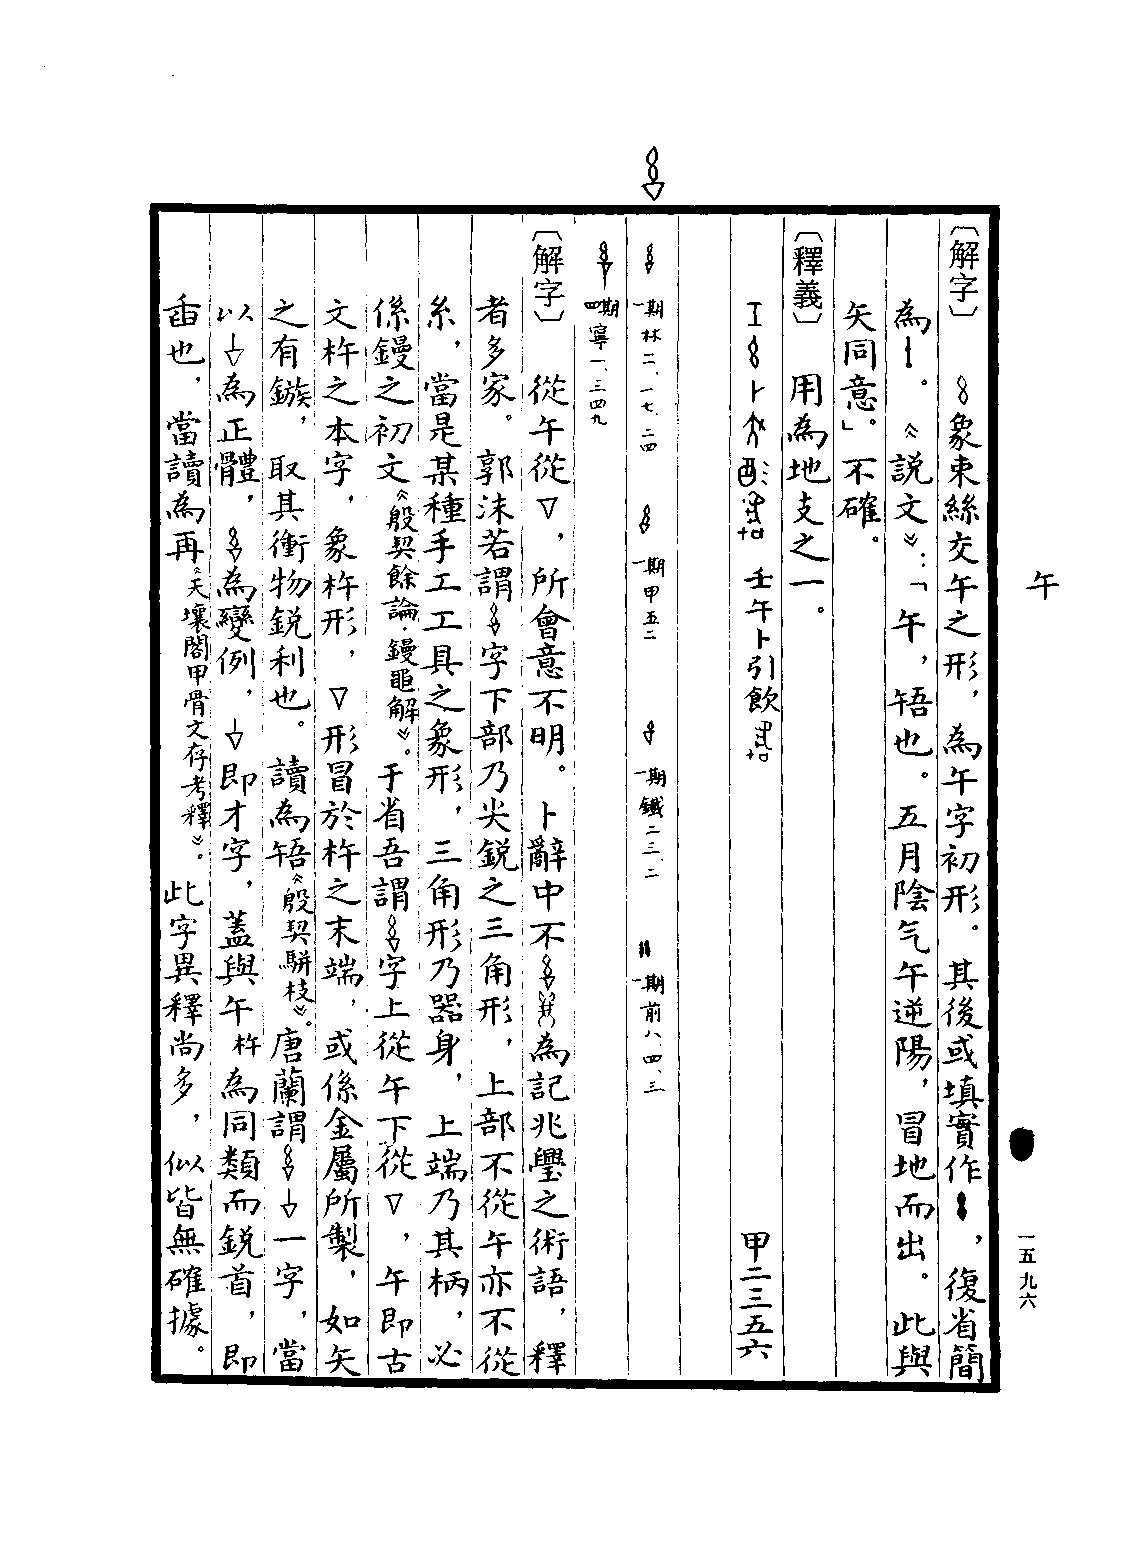 午
一五九六
〔解字〕象束絲交午之形，為午字初形。其後或填實作，復省簡
為。《説文》：「午，啎也。五月陰气午逆陽，冒地而出。此與
矢同意。」不確。
〔釋義〕用為地支之一。
壬午卜引飲
甲二三五六
一期林二、一七、二四
一期甲五二
一期鐵二三、二
一期前八、四、三
四期寧一、三四九
〔解字〕從午從▽，所會意不明。卜辭中不為記兆璺之術語，釋
者多家。郭沫若謂字下部乃尖鋭之三角形，上部不從午亦不從
糸，當是某種手工工具之象形，三角形乃器身，上端乃其柄，必
係鏝之初文《殷契餘論·鏝黽解》。于省吾謂字上從午下從▽，午即古
文杵之本字，象杵形，▽形冒於杵之末端，或係金屬所製，如矢
之有鏃，取其衝物鋭利也。讀為啎《殷契駢枝》。唐蘭謂一字，當
以為正體，為變例，即才字，蓋與午杵為同類而鋭首，即
臿也，當讀為再《天壤閣甲骨文存考釋》。此字異釋尚多，似皆無確據。